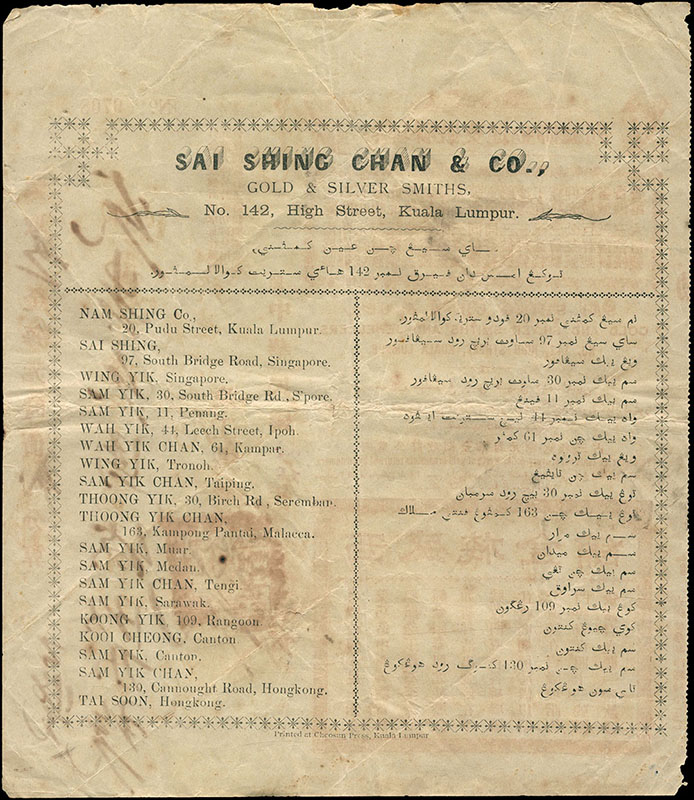 SAI SHING CHAN & CO.,
GOLD & SILVER SMITHS,
No. 142, High Street, Kuala Lumpur.
ساي سيڠ چن عين كمڤني.
توكڠ امس دان ڤيرق نمبر 142 هاءي ستريت كوالا لمڤور.
NAM SHING Co.,
20, Pudu Street, Kuala Lumpur.
SAI SHING,
97, South Bridge Road, Singapore.
WING YIK, Singapore.
SAM YIK, 30, South Bridge Rd., S'pore.
SAM YIK, 11, Penang.
WAH YIK, 44, Leech Street, Ipoh.
WAH YIK CHAN, 61, Kampar.
WING YIK, Tronoh.
SAM YIK CHAN, Taiping.
THOONG YIK, 30, Birch Rd, Seremban.
THOONG YIK CHAN,
163, Kampong Pantai, Malacca.
SAM YIK, Muar.
SAM YIK, Medan.
SAM YIK CHAN, Tengi.
SAM YIK, Sarawak.
KOONG YIK, 109, Rangoon.
KOOI CHEONG, Canton
SAM YIK, Canton.
SAM YIK CHAN,
130, Cannought Road, Hongkong.
TAI SOON, Hongkong.
نم سيڠ كمڤني نمبر 20 ڤودو ستريت كوالا لمڤور.
ساي سيڠ نمبر 97 ساوت بريج رود سيڠاڤور
ويڠ ييك سيڠاڤور
سم ييك نمبر 30 ساوت بريج رود سيڠاڤور
سم ييك نمبر 11 ڤينڠ
واه ييك نمبر 44 ستريت
واه ييك چن نمبر 61
ويڠ ييك ترووه
سم ييك چن تايڤيڠ
توڠ ييك نمبر 30 بيچ رود سرمبان
توڠ ييك چن 163 كمڤوڠ ڤنتي ملاك
سم ييك موار
سم ييك ميدان
سم ييك چن تڠي
سم ييك سراوق
كوڠ ييك نمبر 109 رڠگون
كوي چيوڠ كنتون
سم ييك كنتون
سم ييك چن نمبر 130 رود هوڠكوڠ
تاي سون هوڠكوڠ
Printed at Cheosun Press, Kuala Lumpur